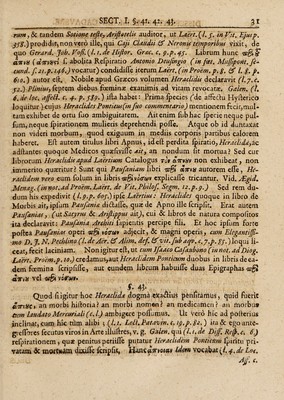 SECT. I. §. 41. 42. 43. 31
rum, & tandem Sotione teste, Aristotelis auditor, ut Laërt. (l. 5. in Vit. Ejus p.
358.) prodidit, non vero ille, qui Caji Claudii & Neronis temporibus vixit, de
quo Gerard. Joh. Voss. (l. 1. de Histor. Græc. c. 9. p. 43. Librum hunc
s. abolita Respiratio Antonio Deusingio (in fœt. Mussipont. se-
cund. s. 21. p. 194) vocatur) condidisse iterum Laërt. (in Proœm. p. 8. & l. 8. p.
610.) autor est. Nobile apud Græcos volumen Heraclidis declaravit (l. 7. c.
52.) Plinius, septem diebus fœminæ exanimis ad vitam revocatæ. Galen. (l.
6. de loc. affect. c. 4. p. 39.) ista habet: Prima species (de affectu Hysterico
loquitur) cujus Heraclides Ponticus (in suo commentario) mentionem fecit, mul-
tam exhibet de eo omnibus ambiguitatem. Ait enim sub hac specie neque pul-
sum, neque spirationem mulieri deprehendi posse. Atque ob id dubitatum
non videri mortuam, quod exiguum in mediis corporis partibus calorem
haberet. Est autem titulus libri Apnus, id est perdita spiratio, Heraclide, ic
adstantes quoque Medicos quæsivisse ait, an nondum sit mortua? Sed cur
librorum Heraclidis apud Laërtium Catalogus non exhibeat, non
immerito quæritur? Sunt qui Pausaniam libri autorem esse, He-
raclidem vero eum solum in libris explicasse tricantur. Vid. Ægid.
Menag. (in not. ad Proœm. Laërt. de Vit. Philos. Segm. 12. p. 9.) Sed rem du-
dum his expedivit (l. 9. p. 605) ipse Laërtius: Heraclides quoque in libro de
Morbis ait, ipsum Pausaniæ dictasse, quæ de Apno ille scripsit. Erat autem
Pausanias, (ut Satyrus & Aristippus ait), cui & librum de natura compositos
ita declaravit: Pausania Archita sapientis percipe fili. Et hoc ipsum forte
postea Pausanias operi adjecit, & magni operis, cum Elegantissi-
mo D. J. N. Pechlino (l. de Aër. & Alim. def. & vit. sub aqv. c. 7. p. 53. loqui li-
ceat, fecit laciniam. Non igitur est, ut cum Isaaco Casaubono (in not. ad Diog.
Laërt. Proœm. p. 10.) credamus, aut Heraclidem Ponticum duobus in libris deca-
dem fœmina scripsisse, aut eundem librum habuisse duas Epigraphas
vel
§. 43.
Quod si igitur hoc Heraclidæ dogma exactius pensitamus, quid fuerit
an morbi historia? an morbi nomen? an medicamen? an histæbus
cum laudato Mercuriali (c. l.) ambigere possumus. Ut vero hic ad posterius
inclinat, cum hic tum alibi ; (l. 1. Lect. Patavin. c. 19. p. 82.) ita & ego ante-
gressis secutus viros in Arte illustres, v. g. Galen. qui (l. 1. de Diff. Resp. c. 8)
respirationem, quæ penitus periisse putatur Heraclidem Ponticum spiritu pri-
vatam & mortuam dixisse scripsit, Hanc Idem vocabat (l. 4. de Loc.
Aff. c.